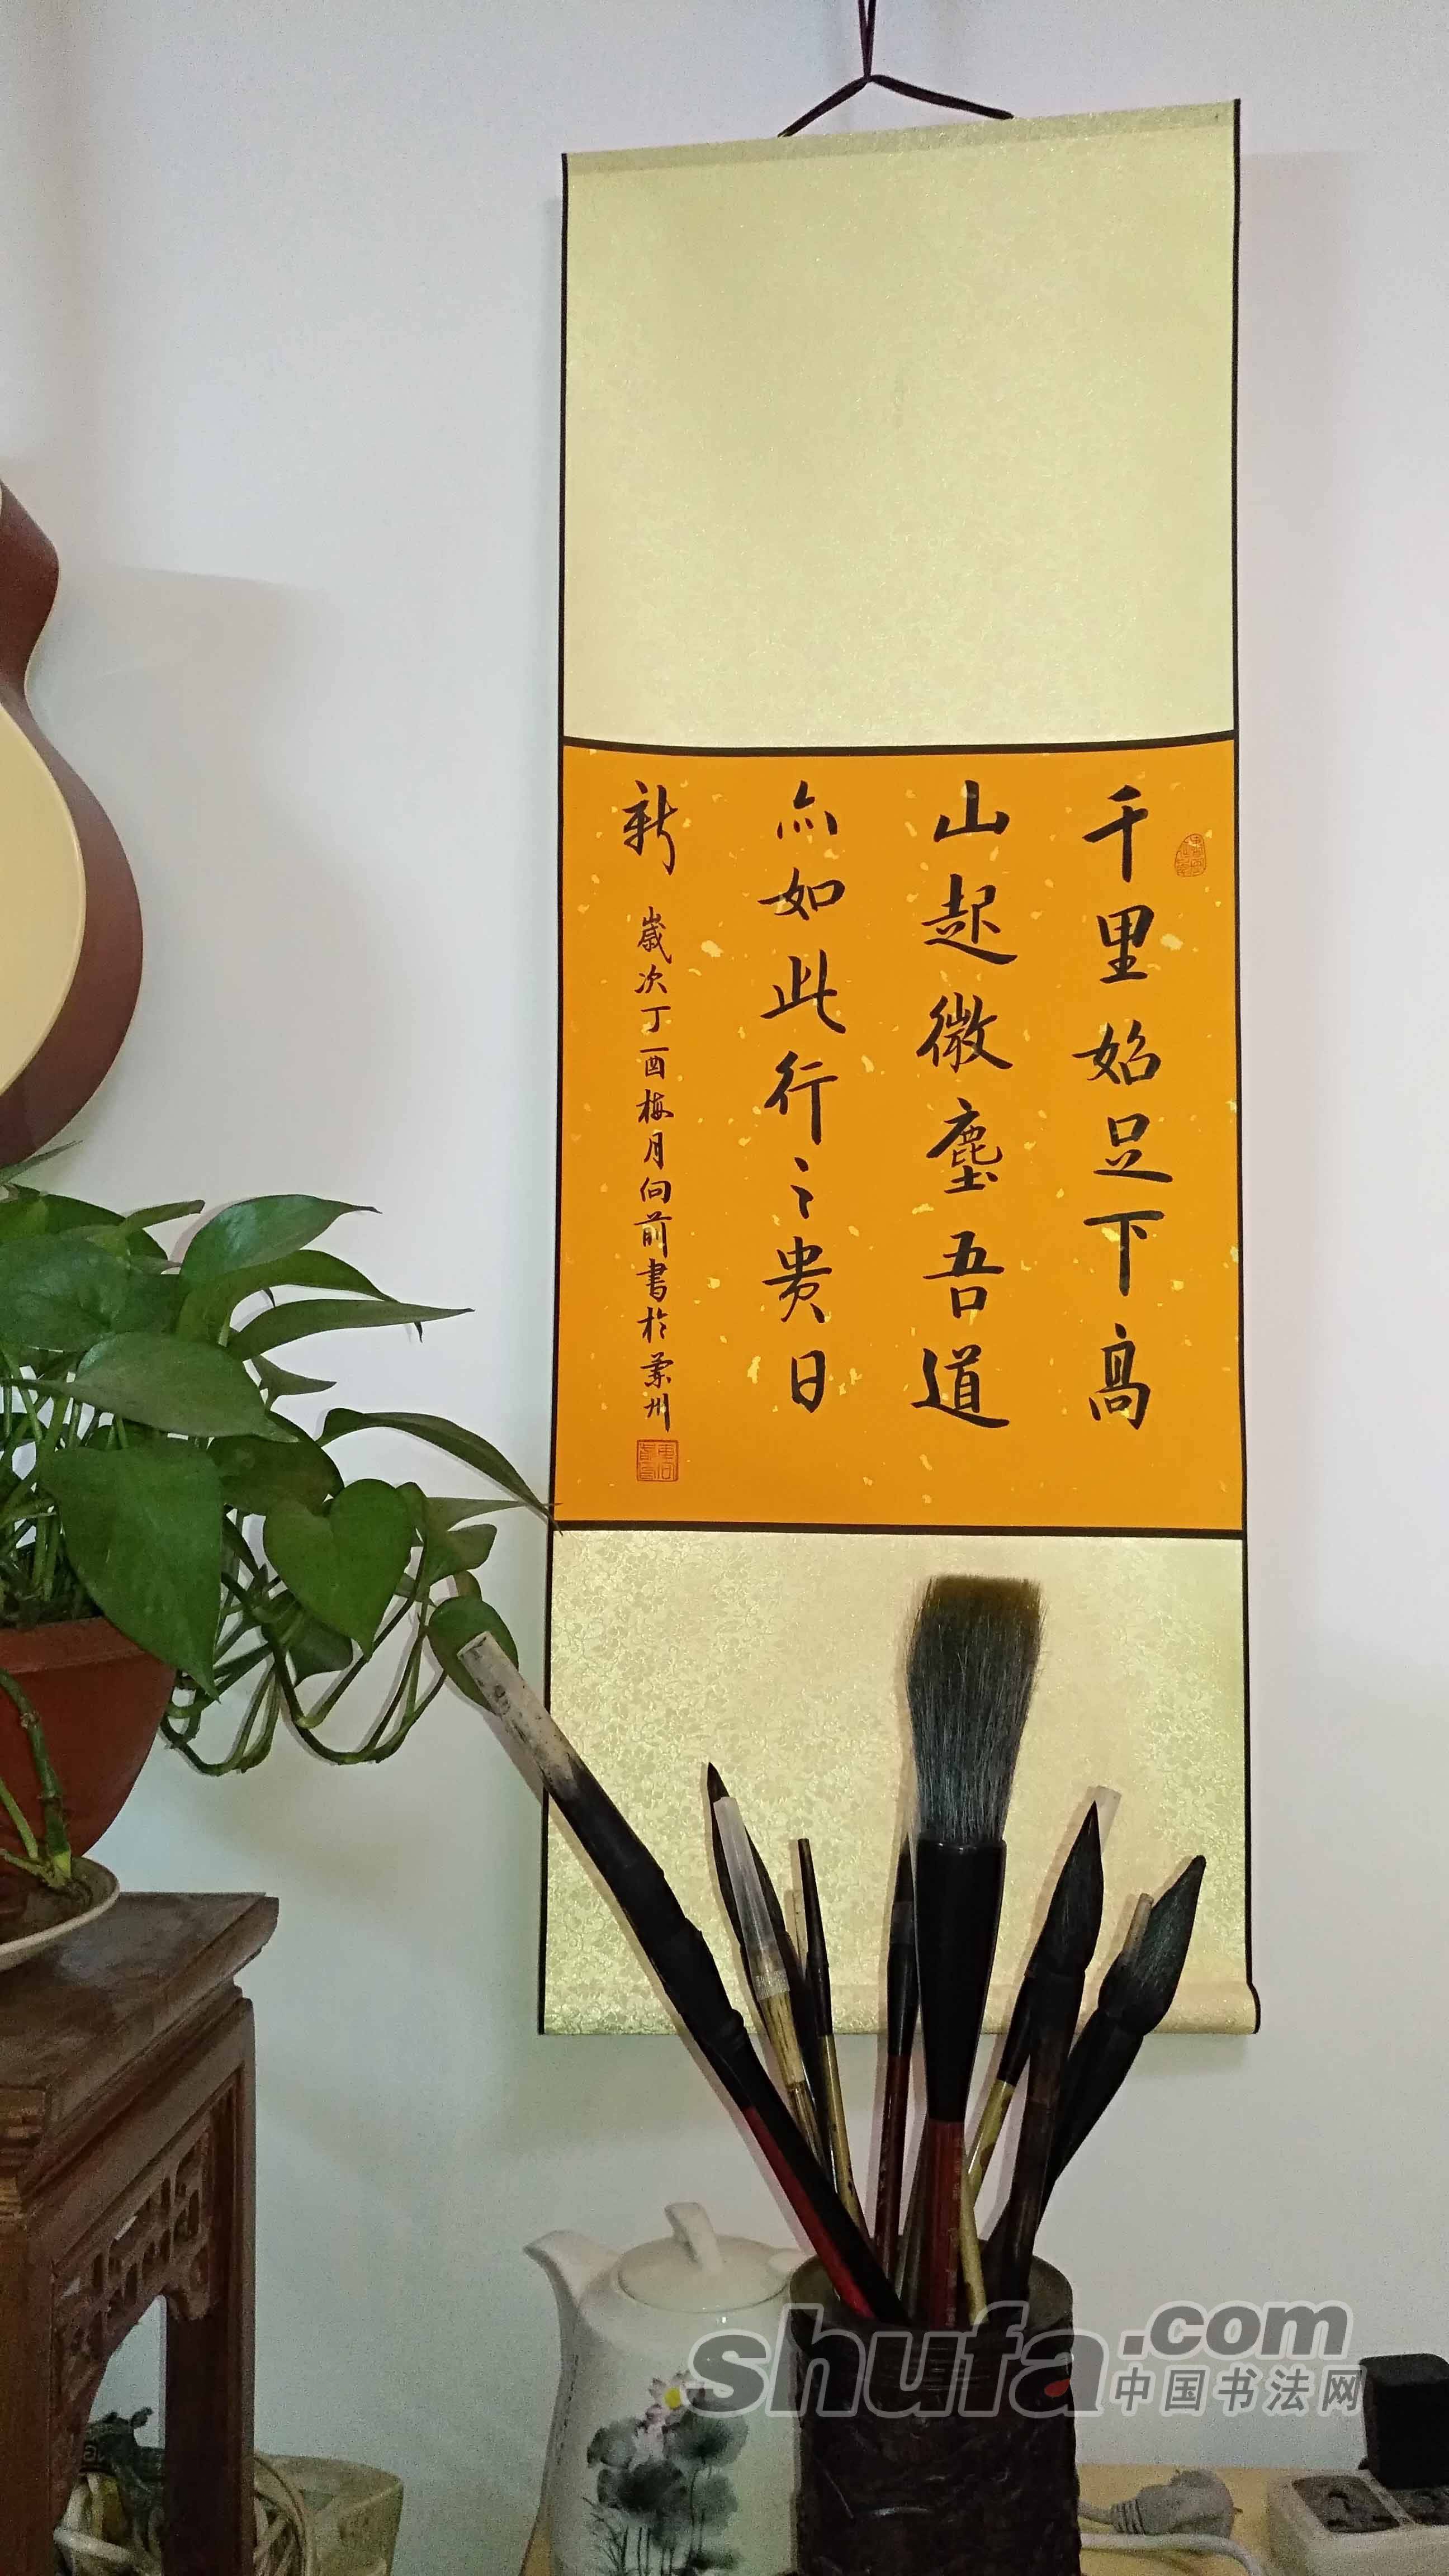 千里始足下高
山起微塵吾道
亦如此行之貴日
新
歲次丁酉梅月向前書於蘭州
shufa.com
中国书法网